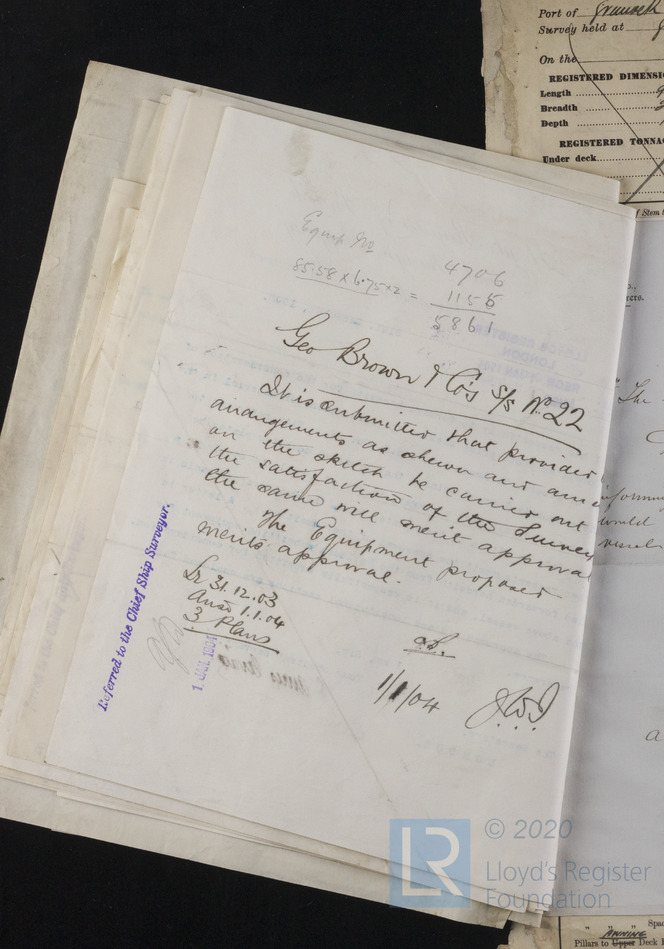 Port of Greenock
Survey held at
On the
REGISTERED DIMENSI
Length
Breadth
Depth
REGISTERED TONNA
Under deck
of Stem t
Equip No
4706
85.58 x 6.75 x 2 = 1155
5861
Geo Brown & Co's S/S No. 22
It is submitted that provided
arrangements as shewn and
on the sketch be carried out
the satisfaction of the Survey
the same will merit approval
The Equipment proposed
merits approval.
Lr 31.12.03
Ansd 1.1.04
3 Plans
1/1/04
J.W.I.
Referred to the Chief Ship Surveyor.
1 JAN. 1904
The
would
vessel
a
© 2020
LR
Lloyd's Register
Foundation
Spac
" AWNING "
Pillars to Upper Deck